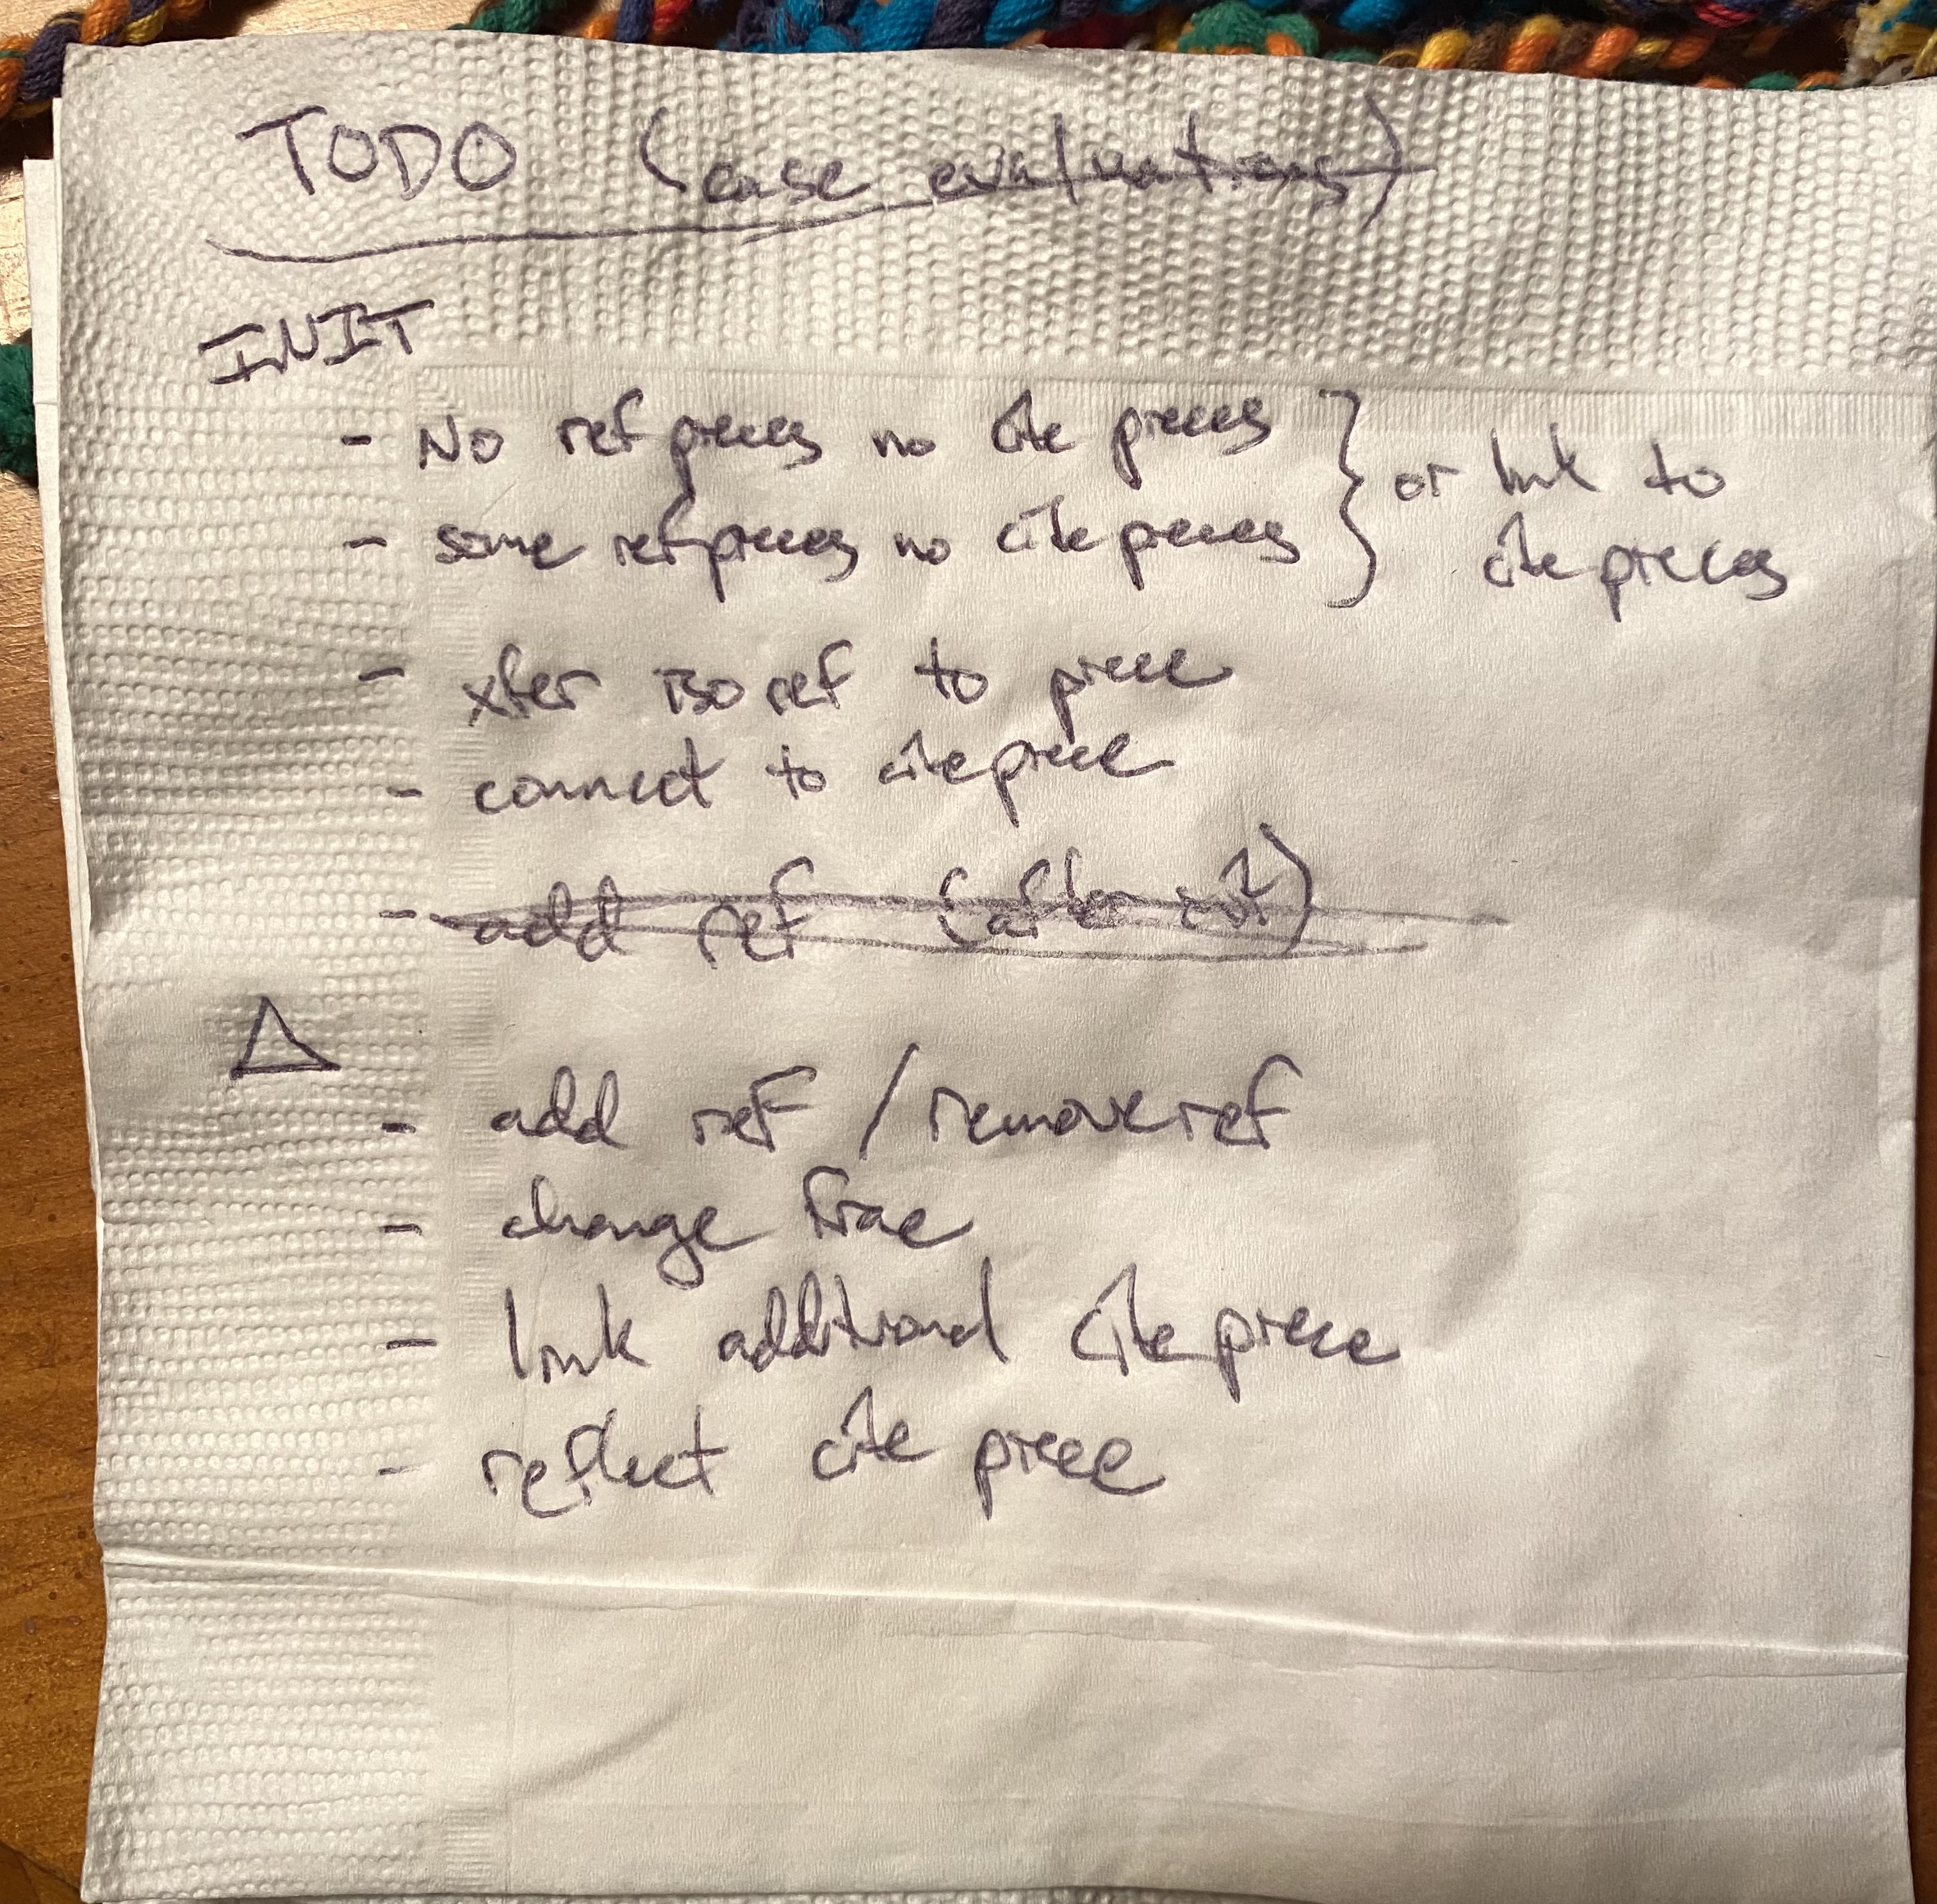 TODO (case evaluations)
INIT
- No ref pieces no cite pieces } or link to
- some ref pieces no cite pieces } cite pieces
- xfer iso ref to piece
- connect to cite piece
- add ref (after
Δ
- add ref / remove ref
- change
- link additional cite piece
- reflect cite piece